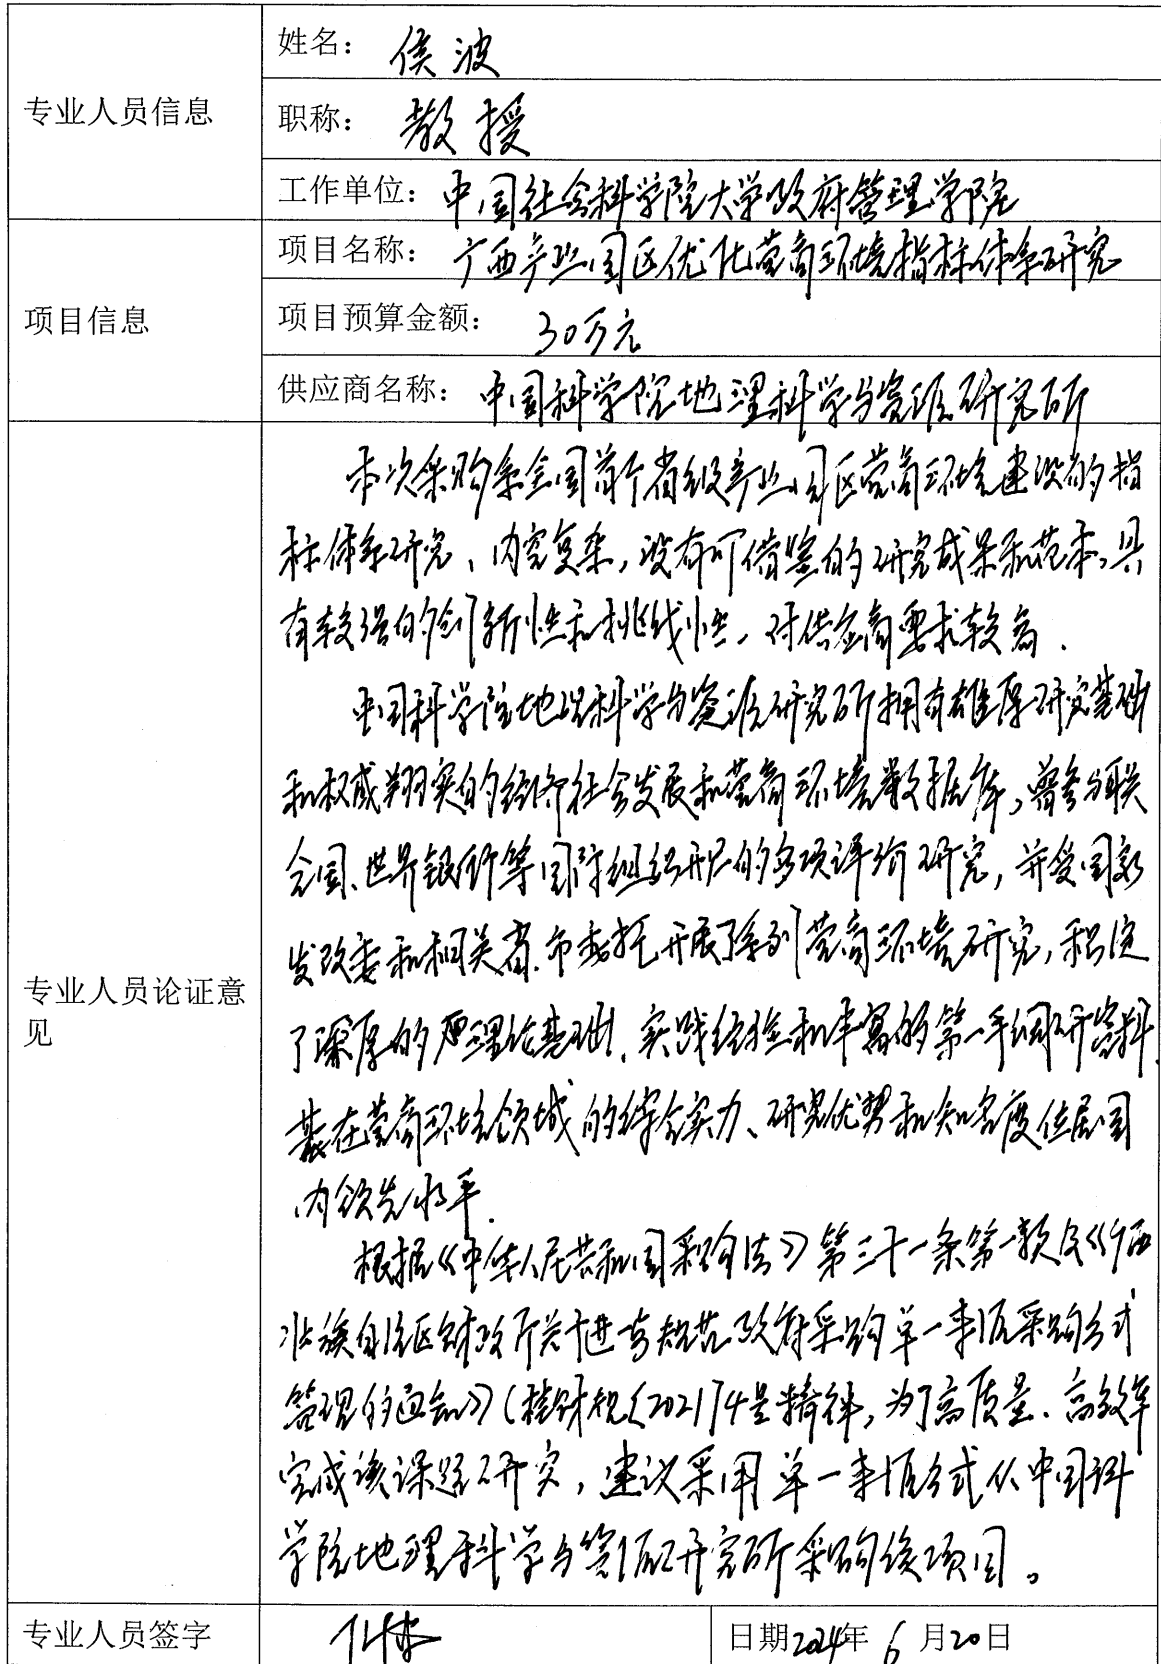 专业人员信息
姓名: 侯波
职称: 教授
工作单位: 中国社会科学院大学政府管理学院
项目信息
项目名称: 广西产业园区优化营商环境指标体系研究
项目预算金额: 30万元
供应商名称: 中国科学院地理科学与资源研究所
专业人员论证意见
本次采购系全国首个省级产业园区营商环境建设的指
标体系研究、内容复杂,没有可借鉴的研究成果和范本,具
有较强的创新性和挑战性,对供应商要求较高.
中国科学院地理科学与资源研究所拥有雄厚研究基础
和权威翔实的经济社会发展和营商环境数据库,曾参与联
合国、世界银行等国际组织开展的多项评价研究,并受国家
发改委和相关省.市委托开展了系列营商环境研究,积淀
了深厚的理论基础、实践经验和丰富的第一手调研资料.
其在营商环境领域的综合实力、研究优势和知名度位居国
内领先水平.
根据《中华人民共和国采购法》第三十一条第一款及《广西
壮族自治区财政厅关于进一步规范政府采购单一来源采购方式
管理的通知》(桂财规〔2021〕4号精神,为了高质量、高效率
完成该课题研究,建议采用单一来源方式从中国科
学院地理科学与资源研究所采购该项目。
专业人员签字
日期2024年 6 月20日